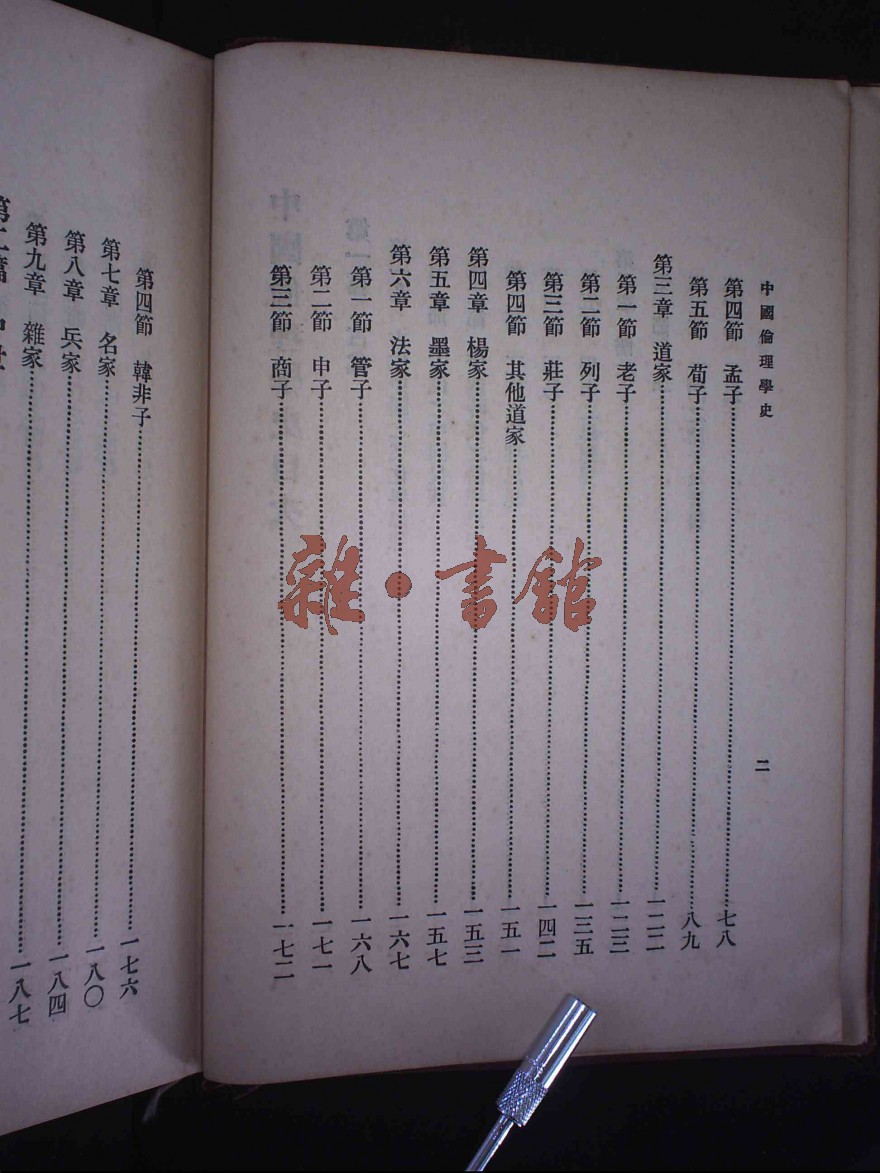 中國倫理學史
二
第四節　孟子……七八
第五節　荀子……八九
第三章　道家……一二二
第一節　老子……一二三
第二節　列子……一三五
第三節　莊子……一四二
第四節　其他道家……一五一
第四章　楊家……一五三
第五章　墨家……一五七
第六章　法家……一六七
第一節　管子……一六八
第二節　申子……一七一
第三節　商子……一七二
第四節　韓非子……一七六
第七章　名家……一八〇
第八章　兵家……一八四
第九章　雜家……一八七
雜·書館